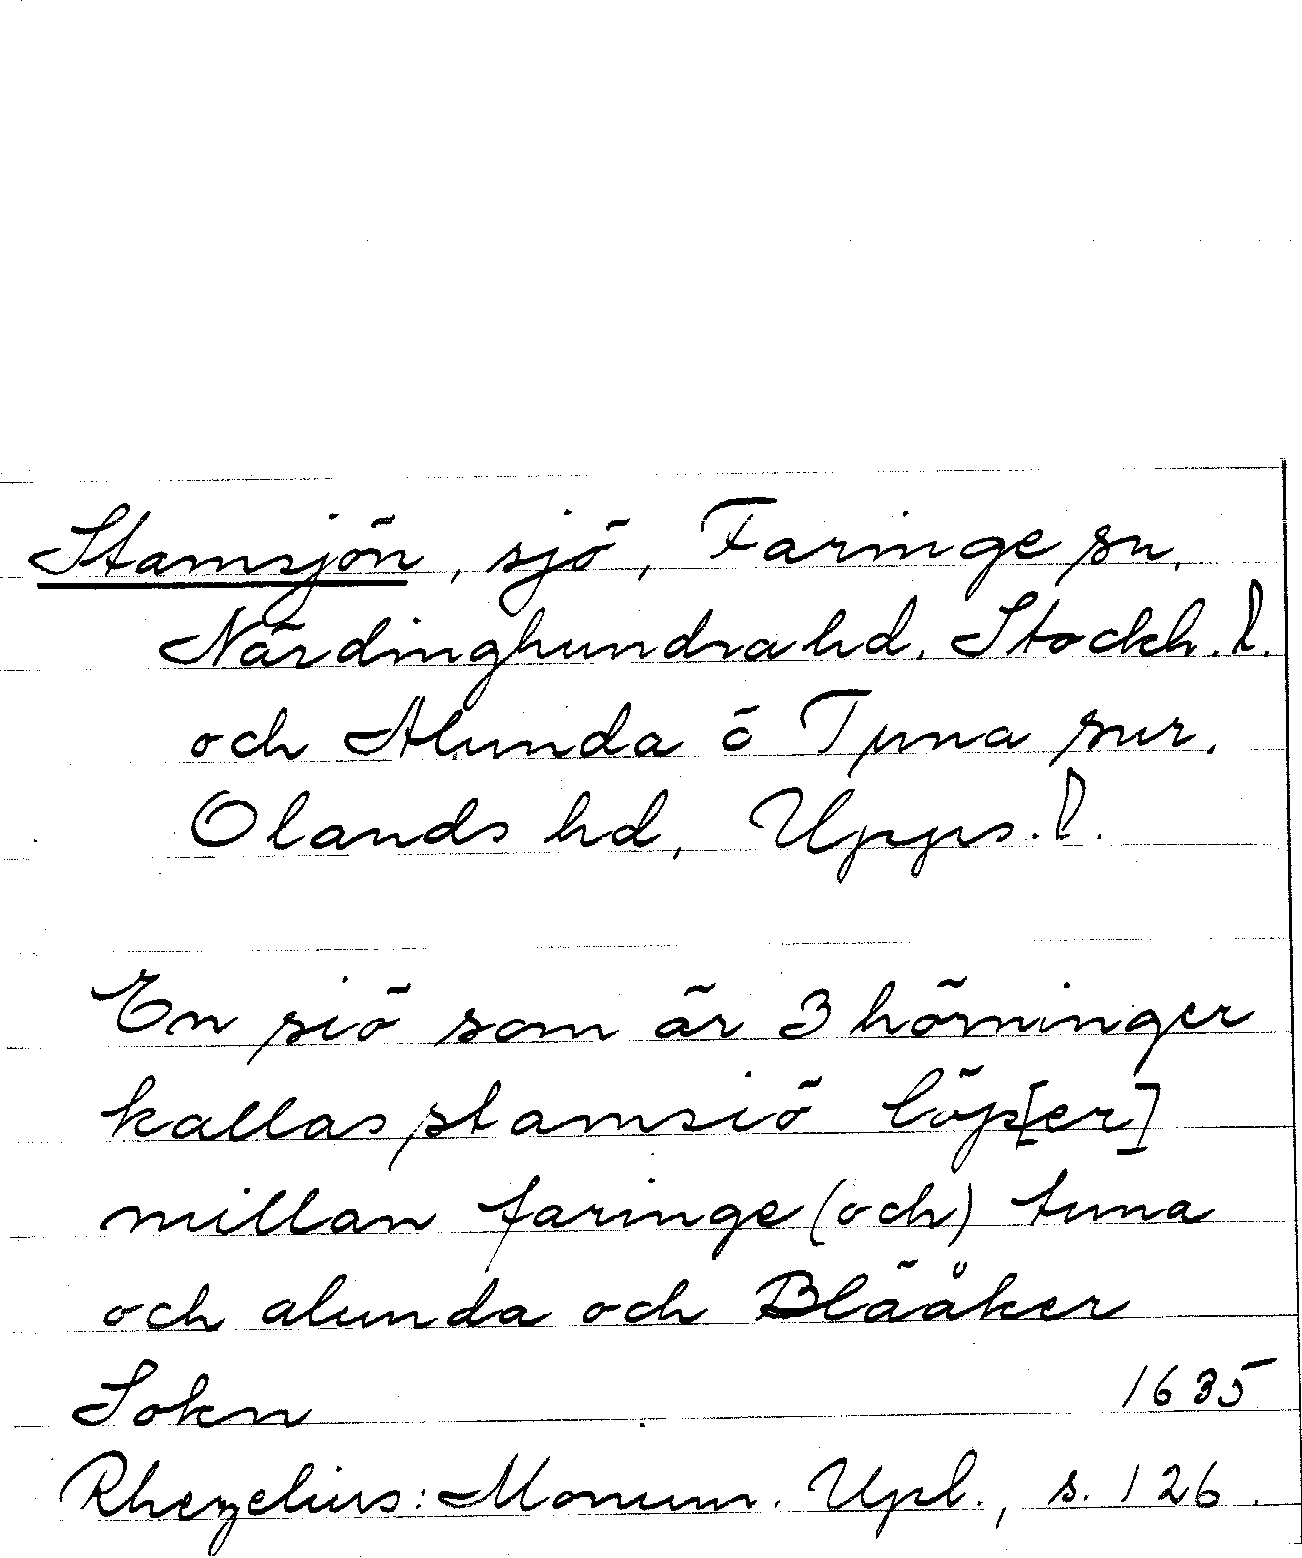 Stamsjön, sjö, Faringe sn,
Närdinghundra hd. Stockh. l.
och Alunda o Tuna snr.
Olands hd, Upps. l.
En siö som är 3 hörninger
kallas stamsiö löp[er]
millan faringe (och) tuna
och alunda och Blääåker
Sokn 1635
Rhezelius: Monum. Upl., s. 126.